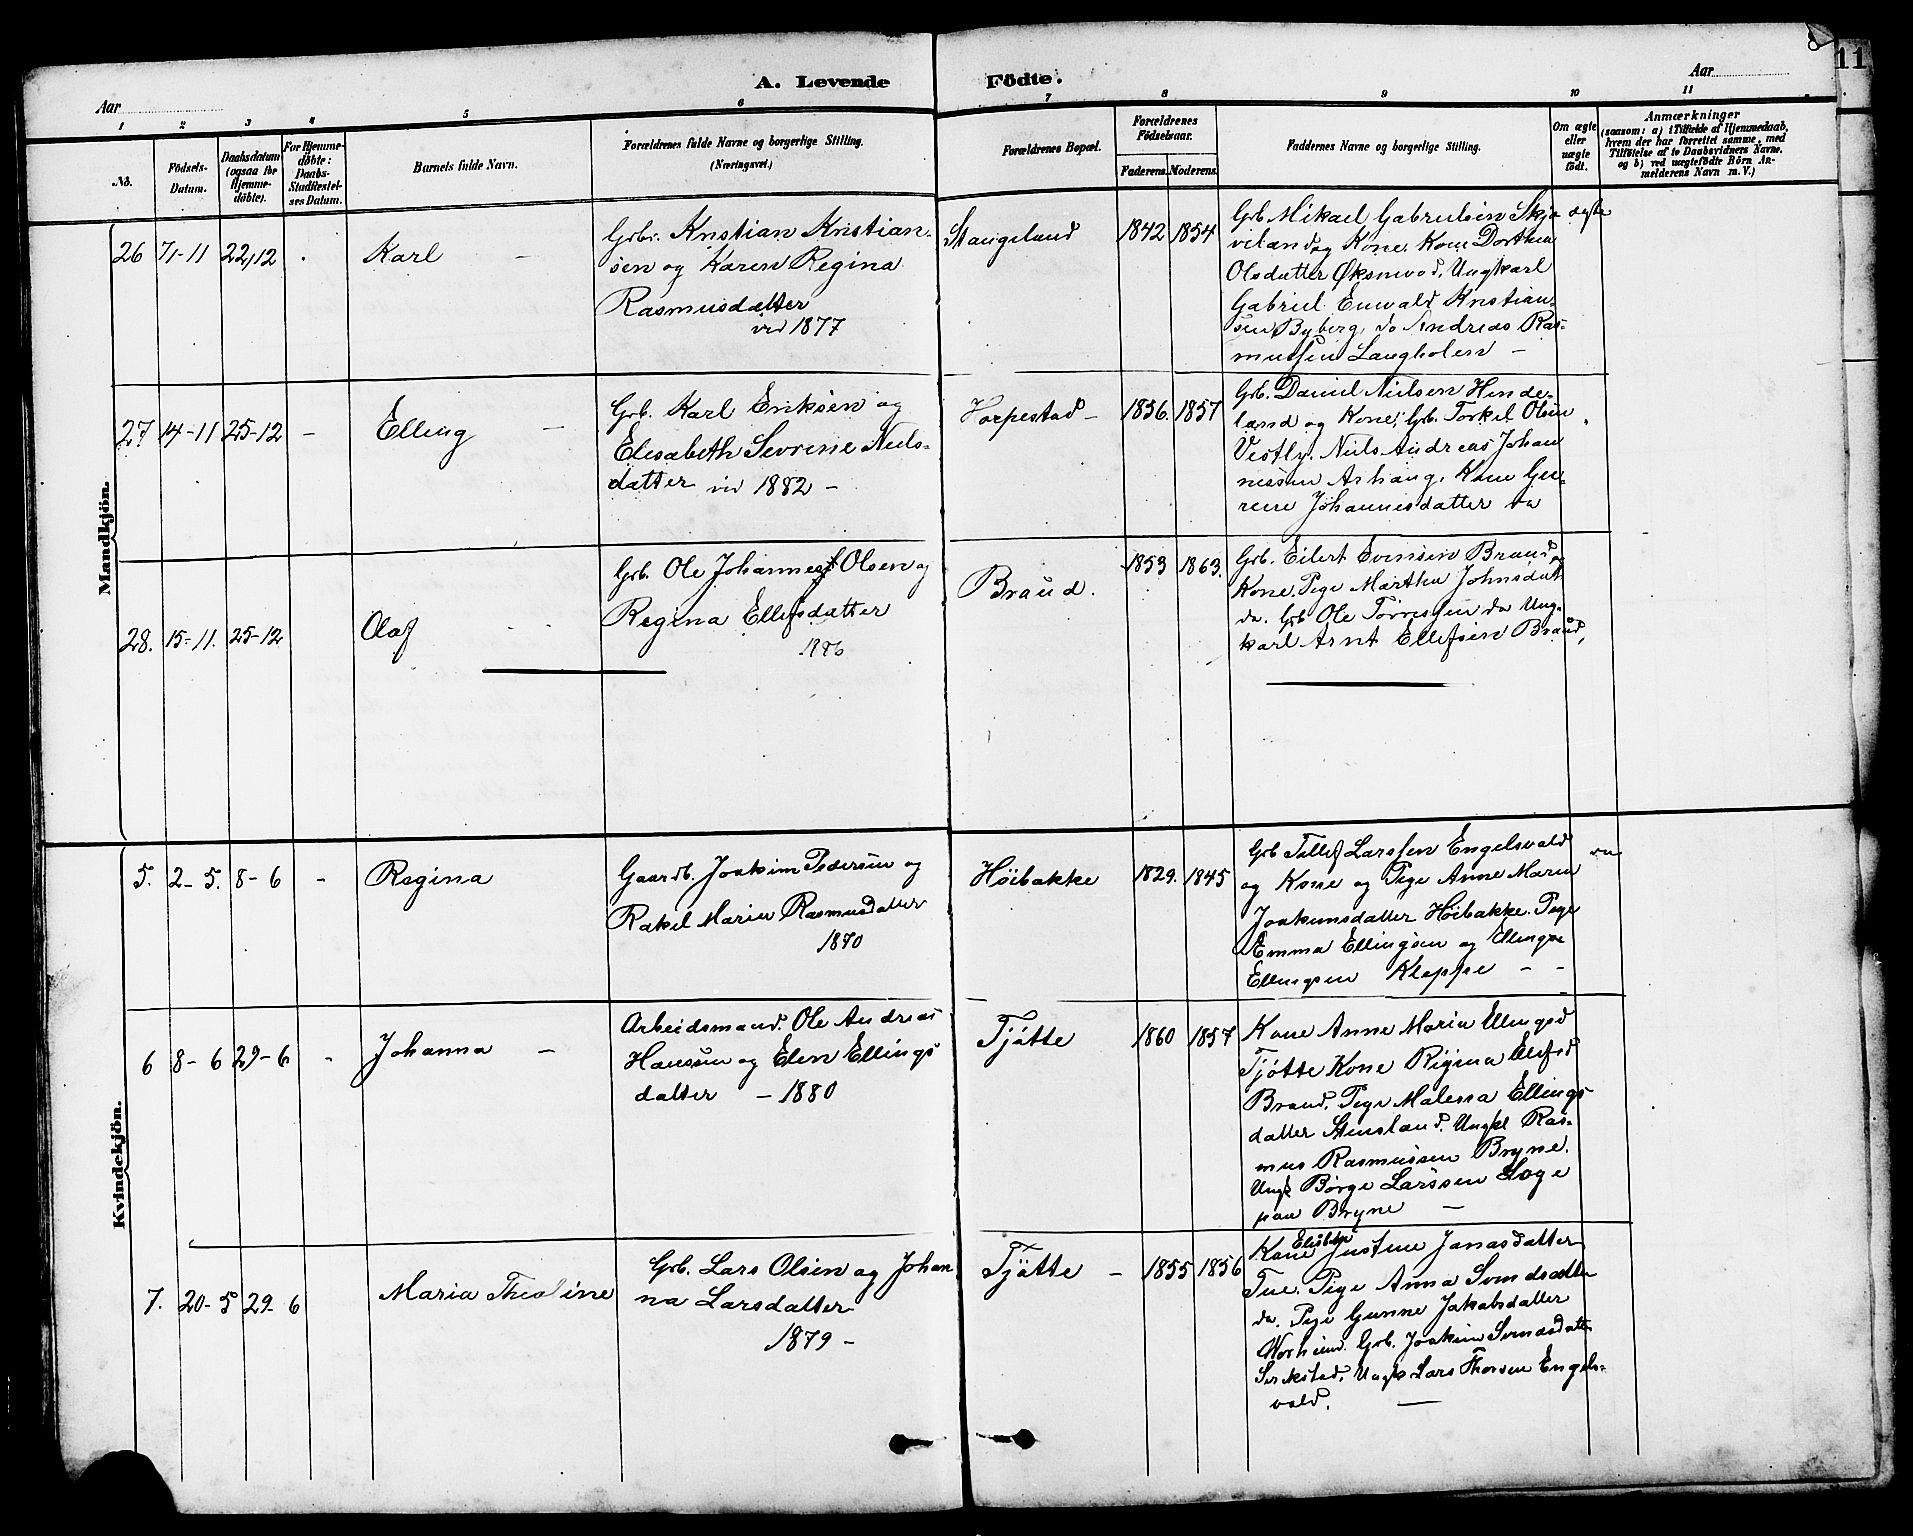 8
11
A. Levende Födte.
Aar
Aar
1 2 3 4 5 6 7 8 9 10 11
No.
Födsels-Datum.
Daabsdatum (ogsaa for Hjemmedöbte).
For Hjemmedöbte: Daabs-Stadfæstelses Datum.
Barnets fulde Navn.
Forældrenes fulde Navne og borgerlige Stilling. (Næringsvei.)
Forældrenes Bopæl.
Forældrenes Födselsaar.
Faderens. Moderens.
Faddernes Navne og borgerlige Stilling.
Om ægte eller uægte födt.
Anmærkninger
(saasom: a) i Tilfælde af Hjemmedaab, hvem der har forrettet samme, med Tilföielse af to Daabsvidners Navne, og b) ved uægtefödte Börn Anmelderens Navn m. V.)
Mandkjön.
26 7-11 22,12 Karl
Grbr. Kristian Kristian-
sen og Karen Regina
Rasmusdatter
ved 1877
Stangeland 1842 1854
Grb Mikael Gabrielsen Skjæ
veland og Kone. Kone Dorthea
Olsdatter Øksnevad, Ungkarl
Gabriel Enevald Kristian-
sen Byberg, do Andreas Ras-
mussen Langholen -
ægte
27 14-11 25-12 - Elling -
Grb. Karl Eriksen og
Elisabeth Sevrine Niels-
datter vi 1882 -
Horpestad - 1856. 1857
Grb. Daniel Nielsen Hinde-
land og Kone; Grb. Torkel Olsen
Vestly. Niels Andreas Johan
nessen Anhaug, Kone
rine Johannesdatter da
28. 15-11. 25-12 Olaf
Grb. Ole Johannes Olsen og
Regina Ellefsdatter
1886
Braud. 1853 1863.
Grb. Eilert Evensen Braud og
Kone, Pige Martha Johnsdat
da. Grb Ole Torressen da Ung-
karl Arnt Ellefsen Braud,
Kvindekjön.
5. 2-5. 8-6 - Regina
Gaardb. Joakim Pedersen og
Rakel Maria Rasmusdatter
1870
Høibakke 1829. 1845
Grb Tallef Larssen Engelsvold
og Kone og Pige Anne Maria
Joakimsdatter Høibakke. Pige
Emma Ellingsen og Ellingse
Ellingsen Kleppe - -
6 8-6 29-6 - Johanna -
Arbeidsmand. Ole Andreas
Hanssen og Elen Ellings
datter - 1880
Tjøtte 1860 1857
Kone Anne Maria Ellingsd
Tjøtte Kone Regina Elefsd
Braud, Pige Malena Ellings
datter Stensland. Ungkl Ras-
mus Rasmussen Bryne.
Ungk Børge Larssen Soge
paa Bryne -
7. 20-5 29-6 Maria Theoline
Grb. Lars Olsen og Johan
na Larsdatter
1879 -
Tjøtte - 1855 1856
Kone Justine Jonasdatter
Tue. Pige Anna Svendsdatter
da. Pige Gunne Jakobsdatter
Grb. Joakim
Ungk Lars Thorsen Engels-
vold. -